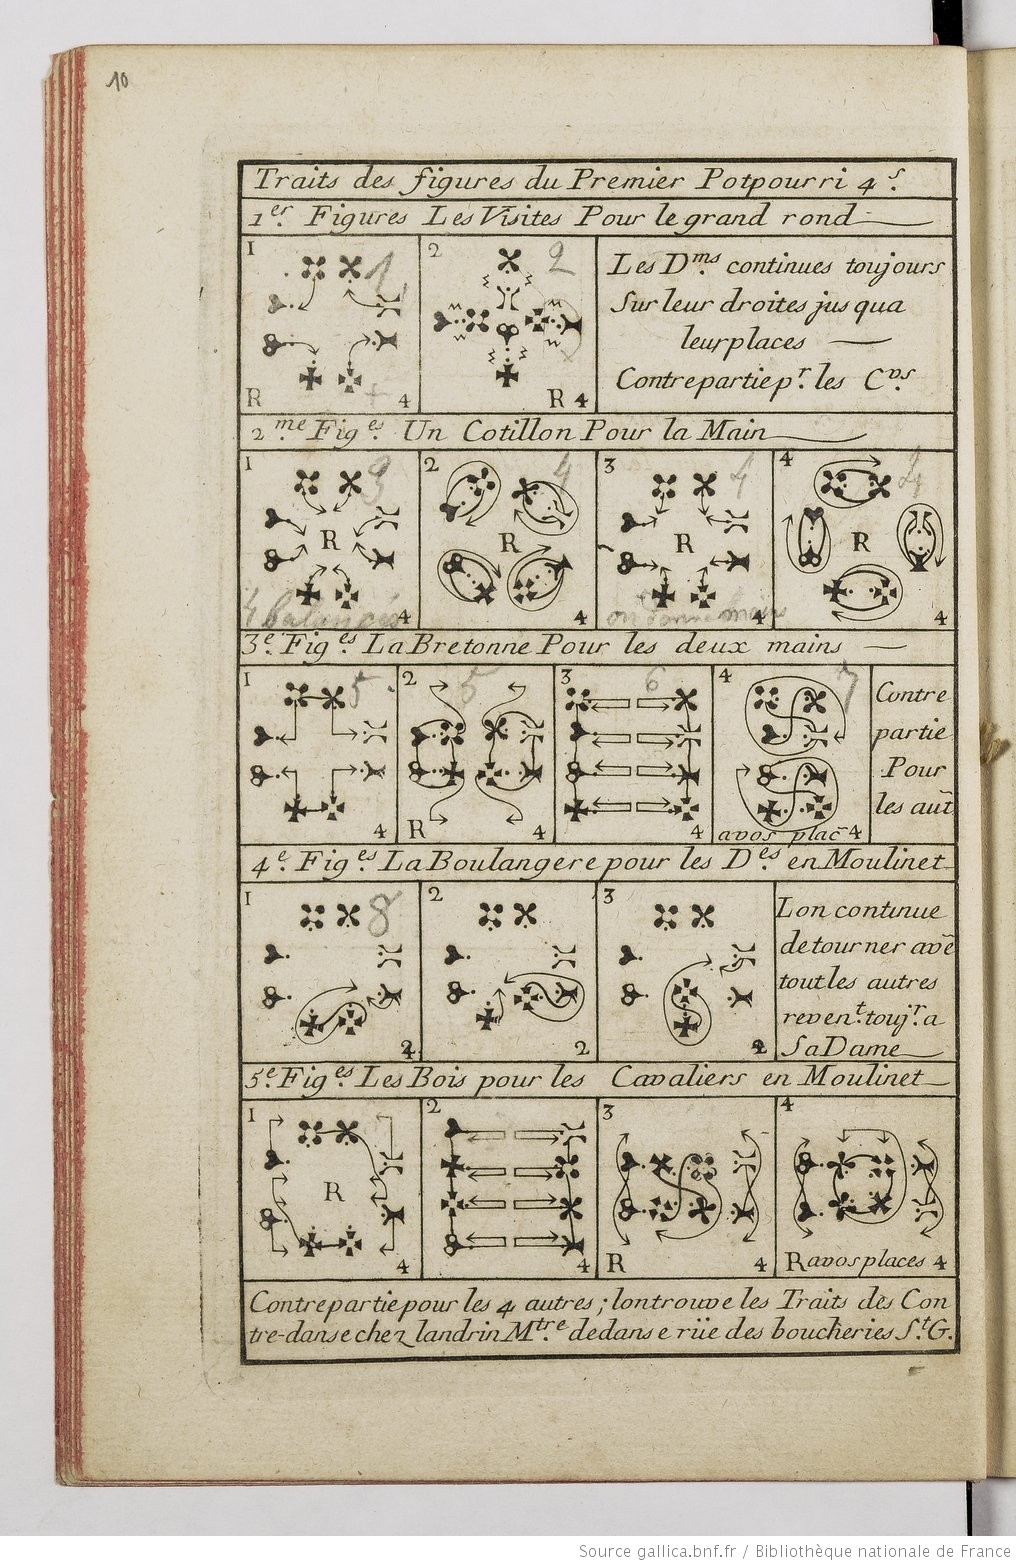 10
Traits des figures du Premier Potpourri 4s.
1er. Figures Les Visites Pour le grand rond
1 1 R 4
2 2 R 4
Les Dms. continues toujours
Sur leur droites jus qua
leur places
Contrepartie pr. les Cvs.
2me. Figes. Un Cotillon Pour la Main
1 3 R 4
4 balancés
2 4 R 4
3 4 R 4
on donne mains
4 4 R 4
3e. Figes. La Bretonne Pour les deux mains
1 5 4
2 5 R 4
3 6 4
4 7
avos plac̃ 4
Contre
partie
Pour
les aut̃
4e. Figes. La Boulangere pour les Des. en Moulinet
1 8 2
2 2
3 2
Lon continue
de tourner avẽ
tout les autres
revent. toujr. a
Sa Dame
5e. Figes. Les Bois pour les Cavaliers en Moulinet
1 R 4
2 4
3 R 4
4
R avos places 4
Contrepartie pour les 4 autres ; lon trouve les Traits des Con
tre-danse chez landrin Mtre. de danse rüe des boucheries St. G.
Source gallica.bnf.fr / Bibliothèque nationale de France